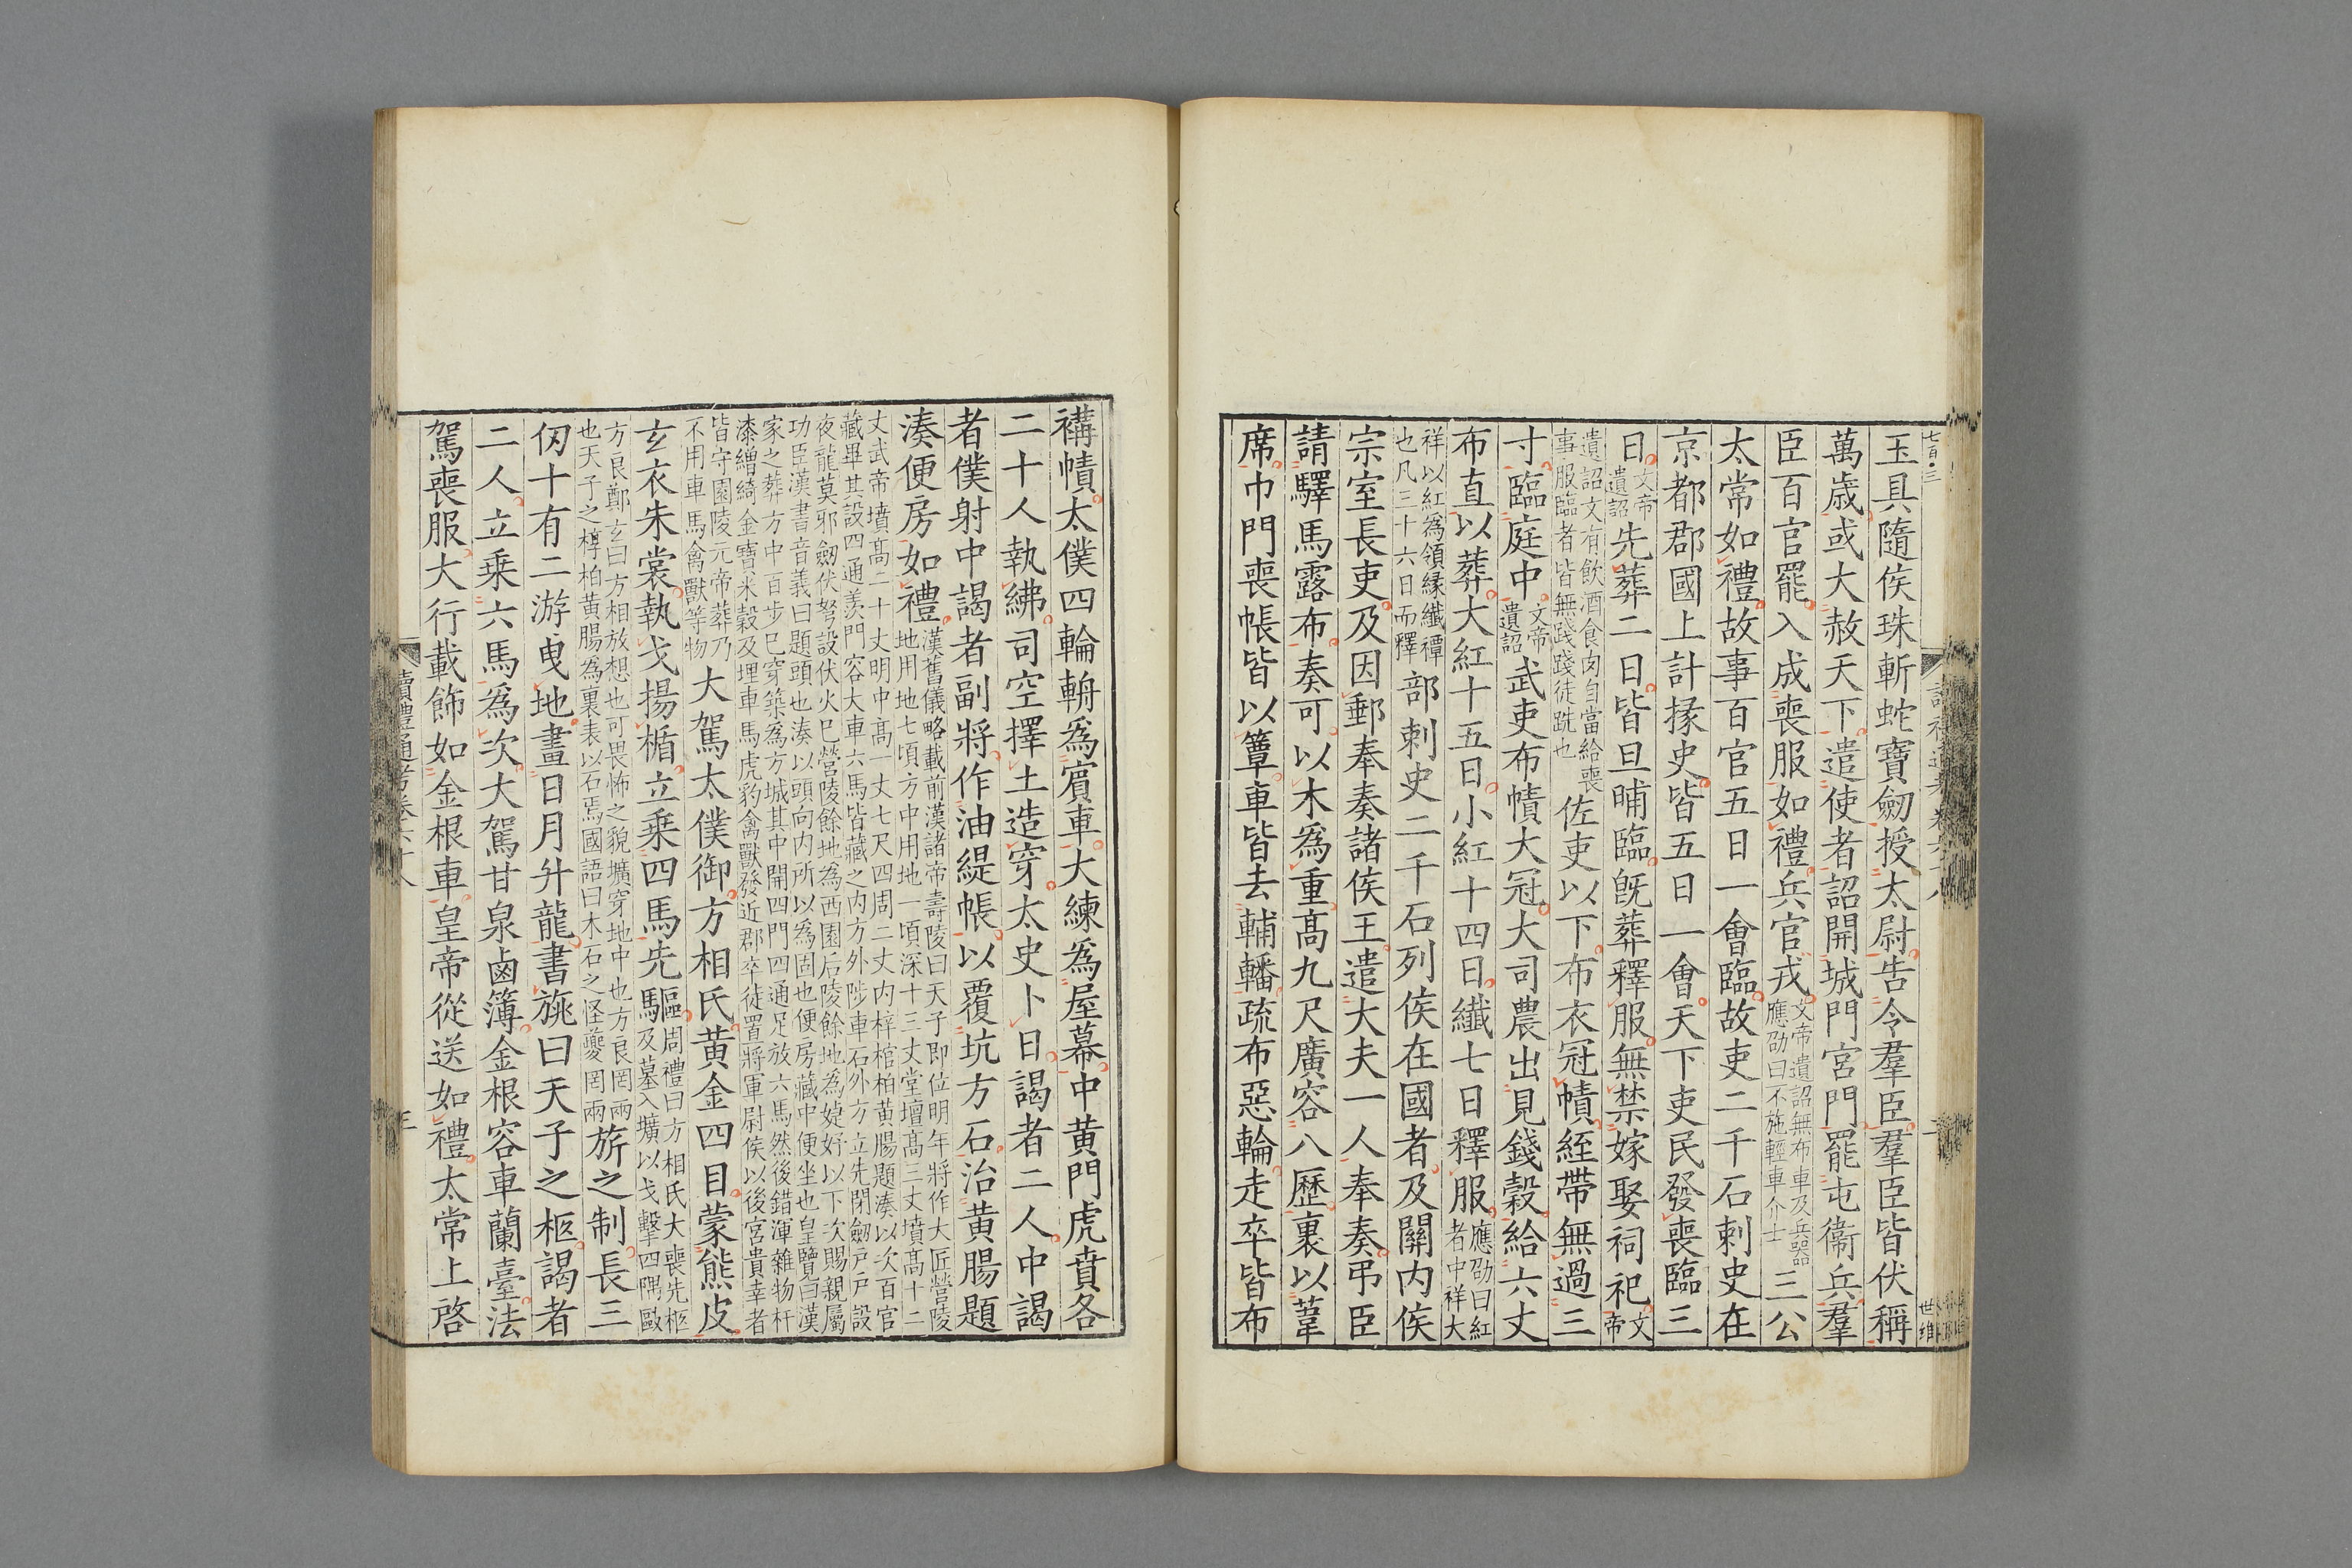 玉具隨侯珠斬蛇寶劒授太尉告令羣臣羣臣皆伏稱
萬歳或大赦天下遣使者詔開城門宮門罷屯衞兵羣
臣百官罷入成喪服如禮兵官戎文帝遺詔無布車及兵器應劭曰不施輕車介士三公
太常如禮故事百官五日一會臨故吏二千石刺史在
京都郡國上計掾史皆五日一會天下吏民發喪臨三
日文帝遺詔先葬二日皆旦晡臨旣葬釋服無禁嫁娶祠祀文帝
遺詔文有飲酒食肉自當給喪事服臨者皆無踐踐徒跣也佐吏以下布衣冠幘絰帶無過三
寸臨庭中文帝遺詔武吏布幘大冠大司農出見錢穀給六丈
布直以葬大紅十五日小紅十四日纖七日釋服應劭曰紅者中祥大
祥以紅爲領緣纖禫也凡三十六日而釋部刺史二千石列侯在國者及關内侯
宗室長吏及因郵奉奏諸侯王遣大夫一人奉奏弔臣
請驛馬露布奏可以木爲重高九尺廣容八歷裏以葦
席巾門喪帳皆以簟車皆去輔轓疏布惡輪走卒皆布
褠幘太僕四輪輈爲賔車大練爲屋幕中黄門虎賁各
二十人執紼司空擇土造穿太史卜日謁者二人中謁
者僕射中謁者副將作油緹帳以覆坑方石治黄腸題
湊便房如禮漢舊儀略載前漢諸帝壽陵曰天子即位明年將作大匠營陵地用地七頃方中用地一頃深十三丈堂壇高三丈墳高十二
丈武帝墳高二十丈明中高一丈七尺四周二丈内梓棺柏黄腸題湊以次百官藏畢其設四通羨門容大車六馬皆藏之内方外陟車石外方立先閉劒户户設
夜龍莫邪劒伏弩設伏火已營陵餘地爲西園后陵餘地爲婕妤以下次賜親屬功臣漢書音義曰題頭也湊以頭向内所以爲固也便房藏中便坐也皇覽曰漢
家之葬方中百步已穿築爲方城其中開四門四通足放六馬然後錯渾雜物杆漆繒綺金寶米穀及埋車馬虎豹禽獸發近郡卒徒置將軍尉侯以後宮貴幸者
皆守園陵元帝葬乃不用車馬禽獸等物大駕太僕御方相氏黄金四目蒙熊皮
玄衣朱裳執戈揚楯立乘四馬先驅周禮曰方相氏大喪先柩及墓入壙以戈擊四隅敺
方良鄭玄曰方相放想也可畏怖之貌壙穿地中也方良罔兩也天子之椁柏黄腸爲裏表以石焉國語曰木石之怪夔罔兩旂之制長三
仞十有二游曳地畫日月升龍書旐曰天子之柩謁者
二人立乘六馬爲次大駕甘泉鹵簿金根容車蘭臺法
駕喪服大行載飾如金根車皇帝從送如禮太常上啓
讀禮通考卷六十八